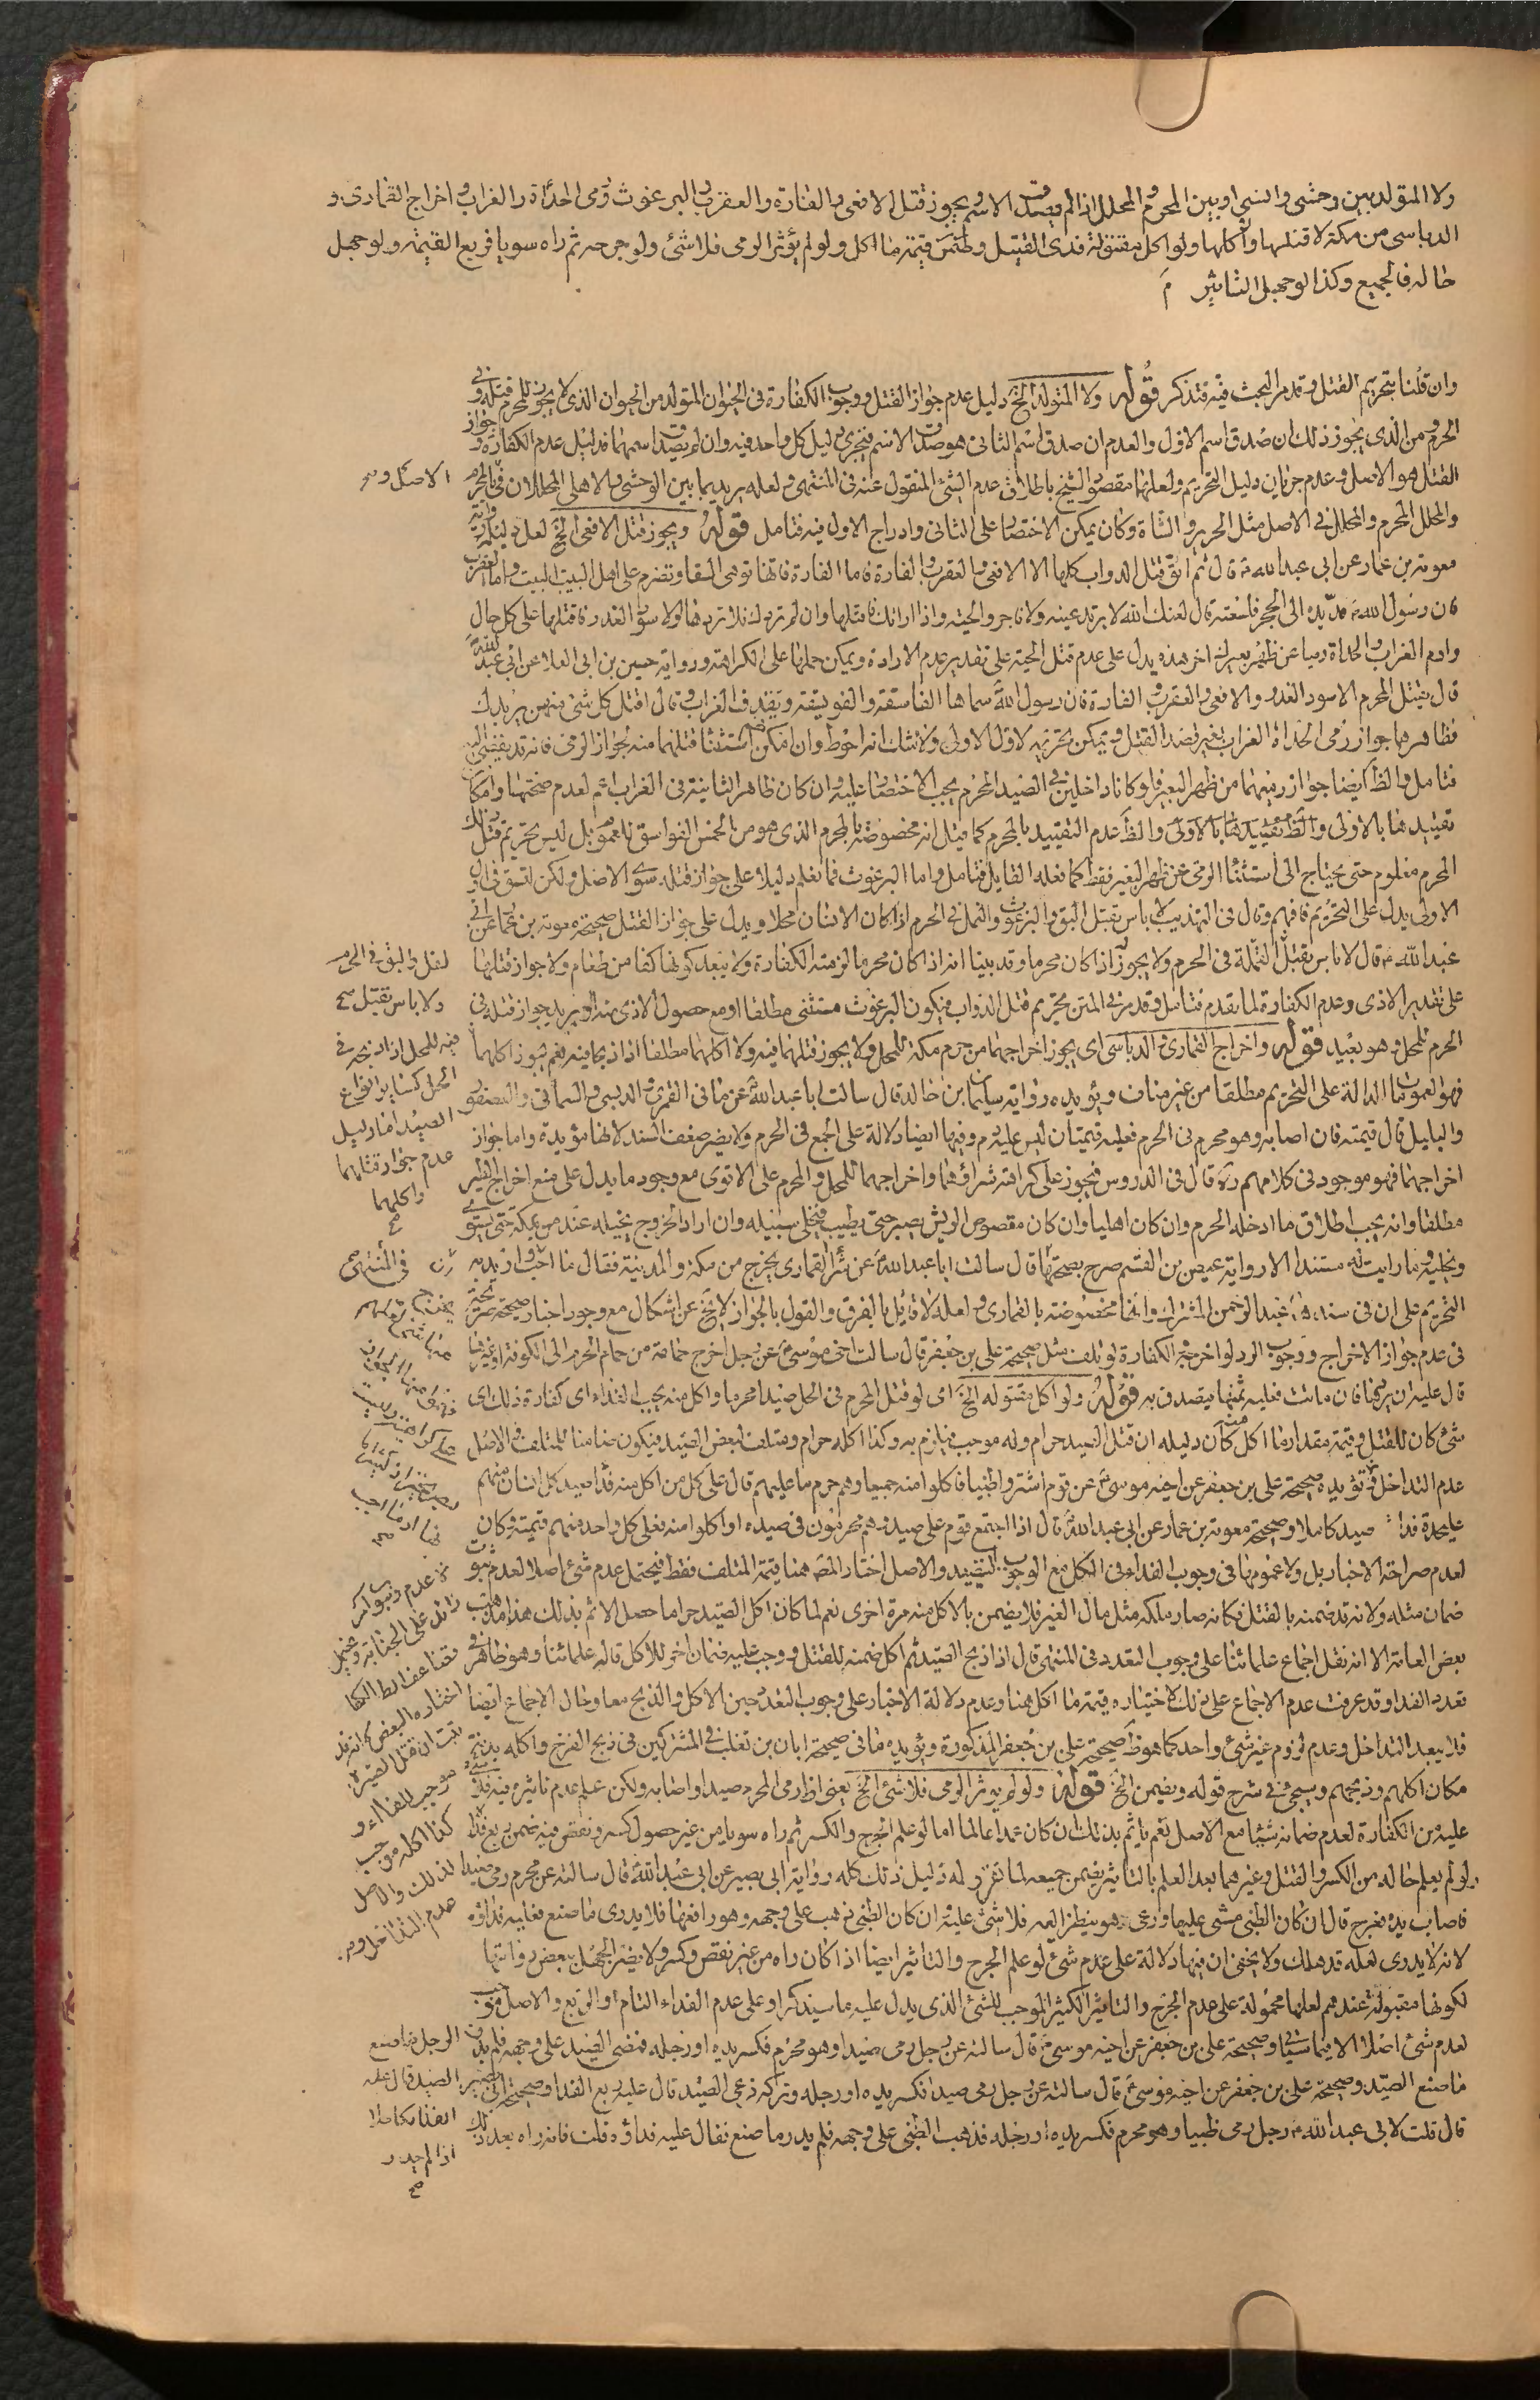 ولا المتولد بين وحشي وانسي او بين المحرم والمحلل اذا لم يصدق الاسم ويجوز قتل الافعى والفارة والعقرب والبرغوث ورمى الحدأة والغراب واخراج القمارى و
الدباسى من مكة لا قتلها واكلها ولو اكل مقتوله فدى القتيل وضمن قيمة ما اكل ولو لم يؤثر الرمى فلا شئ ولو جرحه ثم راه سويا فربع القيمة ولو جهل
حاله فالجميع وكذا لو جهل التاثير م
وان قلنا بتحريم القتل وقد مر البحث فيه فتذكر قوله ولا المتولد الخ دليل عدم جواز القتل ووجوب الكفارة فى الحيوان المتولد من الحيوان الذى لا يجوز للمحرم قتله وفى
الحرم ومن الذى يجوز ذلك ان صدق اسم الاول والعدم ان صدق اسم الثانى هو صدق الاسم فيجرى دليل كل واحد فيه وان لم يصدق اسمهما فدليل عدم الكفارة وجواز
القتل هو الاصل وعدم جريان دليل التحريم ولعلهما مقصود الشيخ باطلاق عدم الشئ المنقول عنه فى المنتهى ولعله يريد بما بين الوحشى والاهلى المحللان وفى المحرم
والمحلل المحرم والمحلل فى الاصل مثل الخنزير والشاة وكان يمكن الاختصار على الثانى وادراج الاول فيه فتامل قوله ويجوز قتل الافعى الخ لعل دليله رواية
معوية بن عمار عن ابى عبد الله ع قال ثم اتق قتل الدواب كلها الا الافعى والعقرب والفارة فاما الفارة فانها توهى السقا وتضرم على اهل البيت البيت واما العقرب
فان رسول الله ص مد يده الى الحجر فلسعته قال لعنك الله لا بر تدعينه ولا فاجر والحية واذا ارادتك فاقتلها وان لم تردك فلا تردها والاسود الغدر فاقتلها على كل حال
وارم الغراب والحداة رميا عن ظهر بعيرك اخر هذه يدل على عدم قتل الحية على تقدير عدم الارادة ويمكن حملها على الكراهة ورواية حسين بن ابى العلا عن ابى عبد الله
قال يقتل المحرم الاسود الغدر والافعى والعقرب والفارة فان رسول الله ص سماها الفاسقة والفويسقة ويقذف الغراب وقال اقتل كل شئ منهن يريدك
فظاهرها جواز رمى الحداة الغراب بغير قصد القتل ويمكن تحريمه لاول الاولى ولا شك انه احوط وان امكن استثنا قتلهما منه لجواز الرمى فانه قد يفضى اليه
فتامل والظ ايضا جواز رميهما من ظهر البعير فلو كانا داخلين فى الصيد المحرم يجب الاختصار عليه وان كان ظاهر الثانية فى الغراب اعم لعدم صحتها وامكان
تقييدها بالاولى والظ عدم التقييد بالمحرم كما قيل انه مخصوصة بالمحرم الذى هو من الخمس الفواسق للعموم بل ليس تحريم قتل ذلك
المحرم معلوم حتى يحتاج الى استثنا الرمى عن ظهر البعير فقط كما فعله القايل فتامل واما البرغوث فما نعلم دليلا على جواز قتله سوى الاصل ولكن لتسق فى
الاولى يدل على التحريم فافهم وقال فى التهذيب لا باس بقتل البق والبرغوث والنمل فى الحرم اذا كان الانسان محلا ويدل على جواز القتل صحيحة معوية بن عمار عن ابى
عبد الله ع قال لا باس بقتل النملة فى الحرم ولا يجوز اذا كان محرما وقد بينا انه اذا كان محرما لزمته الكفارة ولا يبعد كونها كفا من طعام ولا جواز قتلها
على تقدير الاذى وعدم الكفارة لما تقدم فتامل وقد مر فى المتن تحريم قتل الدواب فيكون البرغوث مستثنى مطلقا او مع حصول الاذى منه او يريد جواز قتله فى
الحرم للمحل وهو بعيد قوله واخراج القمارى والدباسى اى يجوز اخراجهما من حرم مكة للمحل ولا يجوز قتلهما فيه ولا اكلهما مطلقا اذا ذبحا فيه نعم يجوز اكلهما
فهو لعموم الدالة على التحريم مطلقا من غير مناف ويؤيده رواية سليمان بن خالد قال سالت ابا عبد الله ع عن ما فى القمرى والدبسى والسمانى والعصفور
والبلبل قال قيمته فان اصابه وهو محرم فى الحرم فعليه قيمتان ليس عليه دم وفيها ايضا دلالة على الجمع فى الحرم ولا يضر ضعف السند لانها مؤيدة واما جواز
اخراجهما فهو موجود فى كلامهم ره قال فى الدروس فيجوز على كراهة شراؤهما واخراجهما للمحل والمحرم على الاقوى مع وجود ما يدل على منع اخراج الطير
مطلقا وانه يجب اطلاق ما ادخله الحرم وان كان اهليا وان كان مقصوص الريش يصبر حتى يطيب فيخلى سبيله وان اراد الخروج يخليه عند من بمكة حتى يستوى
ويخليه وما رايت له مستندا الا رواية عيص بن القسم صرح بصحتها قال سالت ابا عبد الله ع عن شرا القمارى يخرج من مكة والمدينة فقال ما احب ان يخرج
التحريم على ان فى سنده عبد الرحمن المشترك وانها مخصوصة بالقمارى ولعله لا قائل بالفرق والقول بالجواز لا يخ عن اشكال مع وجود اخبار صحيحة صريحة
فى عدم جواز الاخراج ووجوب الرد لو اخرج والكفارة لو تلف مثل صحيحة على بن جعفر قال سالت اخى موسى ع عن رجل اخرج حمامة من حمام الحرم الى الكوفة او غيرها
قال عليه ان يردها فان ماتت فعليه ثمنها يتصدق به قوله ولو اكل مقتوله الخ اى لو قتل المحرم فى الحل صيدا محرما واكل منه يجب الفداء اى كفارة ذلك اى
شئ كان للقتل وقيمة مقدار ما اكل كان دليله ان قتل الصيد حرام وله موجب فيلزم به وكذا اكله حرام ومتلف لبعض الصيد فيكون ضامنا للمتلف والاصل
عدم التداخل وتؤيده صحيحة على بن جعفر عن اخيه موسى ع عن قوم اشتروا ظبيا فاكلوا منه جميعا وهم حرم ما عليهم قال على كل من اكل منه فدا صيد كل انسان منهم
على حدة فدا صيد كاملا وصحيحة معوية بن عمار عن ابى عبد الله ع قال اذا اجتمع قوم على صيد وهم محرمون فى صيده او اكلوا منه فعلى كل واحد منهم قيمته وكان
لعدم صراحة الاخبار بل ولا عمومها فى وجوب الفداء فى الكل مع الوجوب للصيد والاصل اختار المص همنا قيمة المتلف فقط فيحتمل عدم شئ اصلا لعدم ثبوت
ضمان مثله ولانه قد ضمنه بالقتل فكانه صار ملكه مثل مال الغير فلا يضمن بالاكل منه مرة اخرى نعم لما كان اكل الصيد حراما حصل الاثم بذلك هذا مذهب
بعض العامة الا انه نقل اجماع علمائنا على وجوب التعدد فى المنتهى قال اذا ذبح الصيد ثم اكل ضمنه للقتل ووجب عليه ضمان اخر للاكل قاله علمائنا وهو ظاهر فى
تعدد الفدا وقد عرفت عدم الاجماع على ذلك لاختياره قيمة ما اكل همنا وعدم دلالة الاخبار على وجوب التعدد حين الاكل والذبح معا وخال الاجماع ايضا
فلا يبعد التداخل وعدم لزوم غير شئ واحد كما هو ظ صحيحة على بن جعفر المذكورة ويؤيده ما فى صحيحة ابان بن تغلب فى المشتركين فى ذبح الفرخ واكله بدنة
مكان اكلهم وذبحهم وسيجئ فى شرح قوله ويضمن الخ قوله ولو لم يوثر الرمى فلا شئ الخ يعنى اذا رمى المحرم صيدا واصابه ولكن علم عدم تاثيره فيه فلا شئ
عليه من الكفارة لعدم ضمانه شيئا مع الاصل نعم ياثم بذلك ان كان عمدا عالما اما لو علم الجرح والكسر ثم راه سويا من غير حصول كسر ونقص فيه ضمن ربع الفدا
ولو لم يعلم حاله من الكسر والقتل وغيرهما بعد العلم بالتاثير يضمن جميعه لما تقرر له دليل ذلك كله رواية ابى بصير عن ابى عبد الله ع قال سالته عن محرم رمى صيدا
فاصاب يده فعرج قال ان كان الظبى مشى عليها ورعى وهو ينظر اليه فلا شئ عليه وان كان الظبى ذهب على وجهه وهو رافعها فلا يدرى ما صنع فعليه فداؤه
لانه لا يدرى لعله قد هلك ولا يخفى ان فيها دلالة على عدم شئ لو علم الجرح والتاثير ايضا اذا كان راه من غير نقص وكسر ولا يضر الجهل ببعض رواتها
لكونها مقبولة عندهم لعلها محمولة على عدم الجرح والتاثير الكثير الموجب للشئ الذى يدل عليه ما سيذكر او على عدم الفداء التام او الربع والاصل
لعدم شئ اصلا الا فيما سيأتى وصحيحة على بن جعفر عن اخيه موسى ع قال سالته عن رجل رمى صيدا وهو محرم فكسر يده او رجله فمضى الصيد على وجهه فلم يدر الرجل ما صنع
ما صنع الصيد وصحيحة على بن جعفر عن اخيه موسى ع قال سالته عن رجل رمى صيدا فكسر يده او رجله وتركه فرعى الصيد قال عليه ربع الفدا وصحيحة ابى بصير
قال قلت لابى عبد الله ع رجل رمى ظبيا وهو محرم فكسر يده او رجله فذهب الظبى على وجهه فلم يدر ما صنع فقال عليه فداؤه قلت فانه راه بعد ذلك
ولا باس بقتل صح
القمل والبق فى الحرم
الصيد اما دليل
عدم جواز قتلهما
واكلهما
صح
فى المنتهى
اختاره البعض
موجب للفداء و
كذا اكله موجب
لذلك والاصل
عدم التداخل
الصيد قال عليه
الفداء كاملا
اذا لم يدر
صح